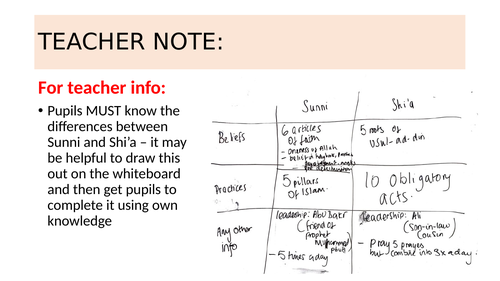 TEACHER NOTE:
For teacher info:
• Pupils MUST know the
differences between
Sunni and Shi'a – it may
be helpful to draw this
out on the whiteboard
and then get pupils to
complete it using own
knowledge
Sunni
Shi'a
Beliefs
6 articles
of faith
- oneness of Allah
- belief in
5 roots of
Usul-ad-din
Practices
5 pillars
of Islam.
10 Obligatory
acts.
Any other
info
leadership: Abu Bakr
(friend of
Prophet
Muhammad
pbuh)
- 5 times a day
leadership: Ali
(Son-in-law
cousin)
- Pray 5 prayers
but combine into 3x a day.